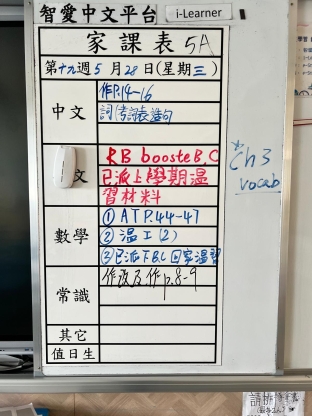 智愛中文平台
i-Learner
家課表 5A
第十九週 5 月 28 日(星期三)
中文
作P.14-16
詞(考試表造句
文
RB booste B, C
已派上學期溫
習材料
*Ch3
vocab
數學
① AT P.44-47
② 温工(2)
③已派下B.C 回家溫習
常識
作改及作p.8-9
其它
值日生